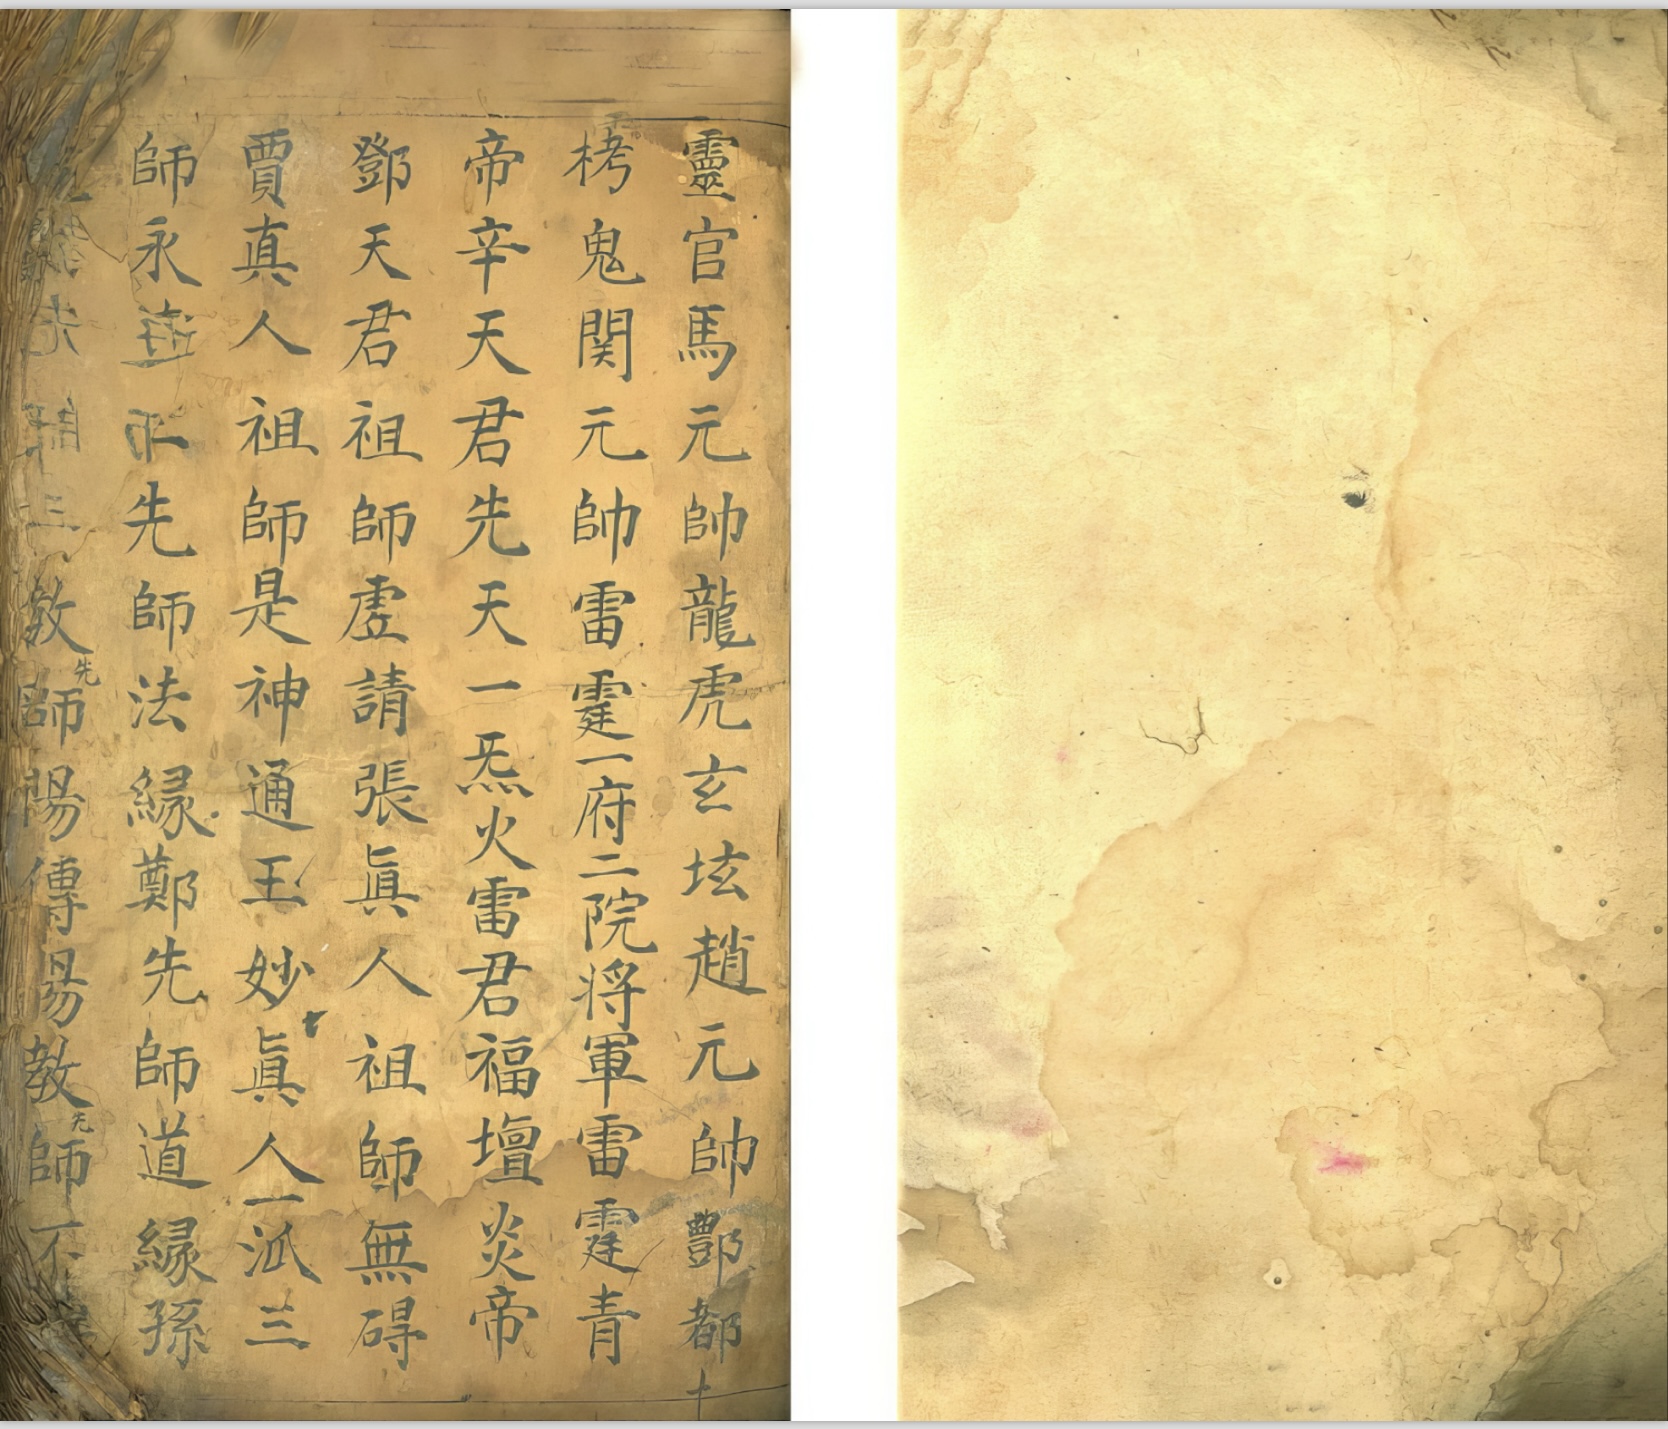 靈官馬元帥龍虎玄坛趙元帥酆都
栲鬼関元帥雷霆一府二院将軍雷霆青
帝辛天君先天一炁火雷君福壇炎帝
鄧天君祖師虗請張眞人祖師無碍
賈真人祖師是神通王妙眞人一派三
師永先師法縁鄭先師道縁孫
三教先師陽傳昜教先師不